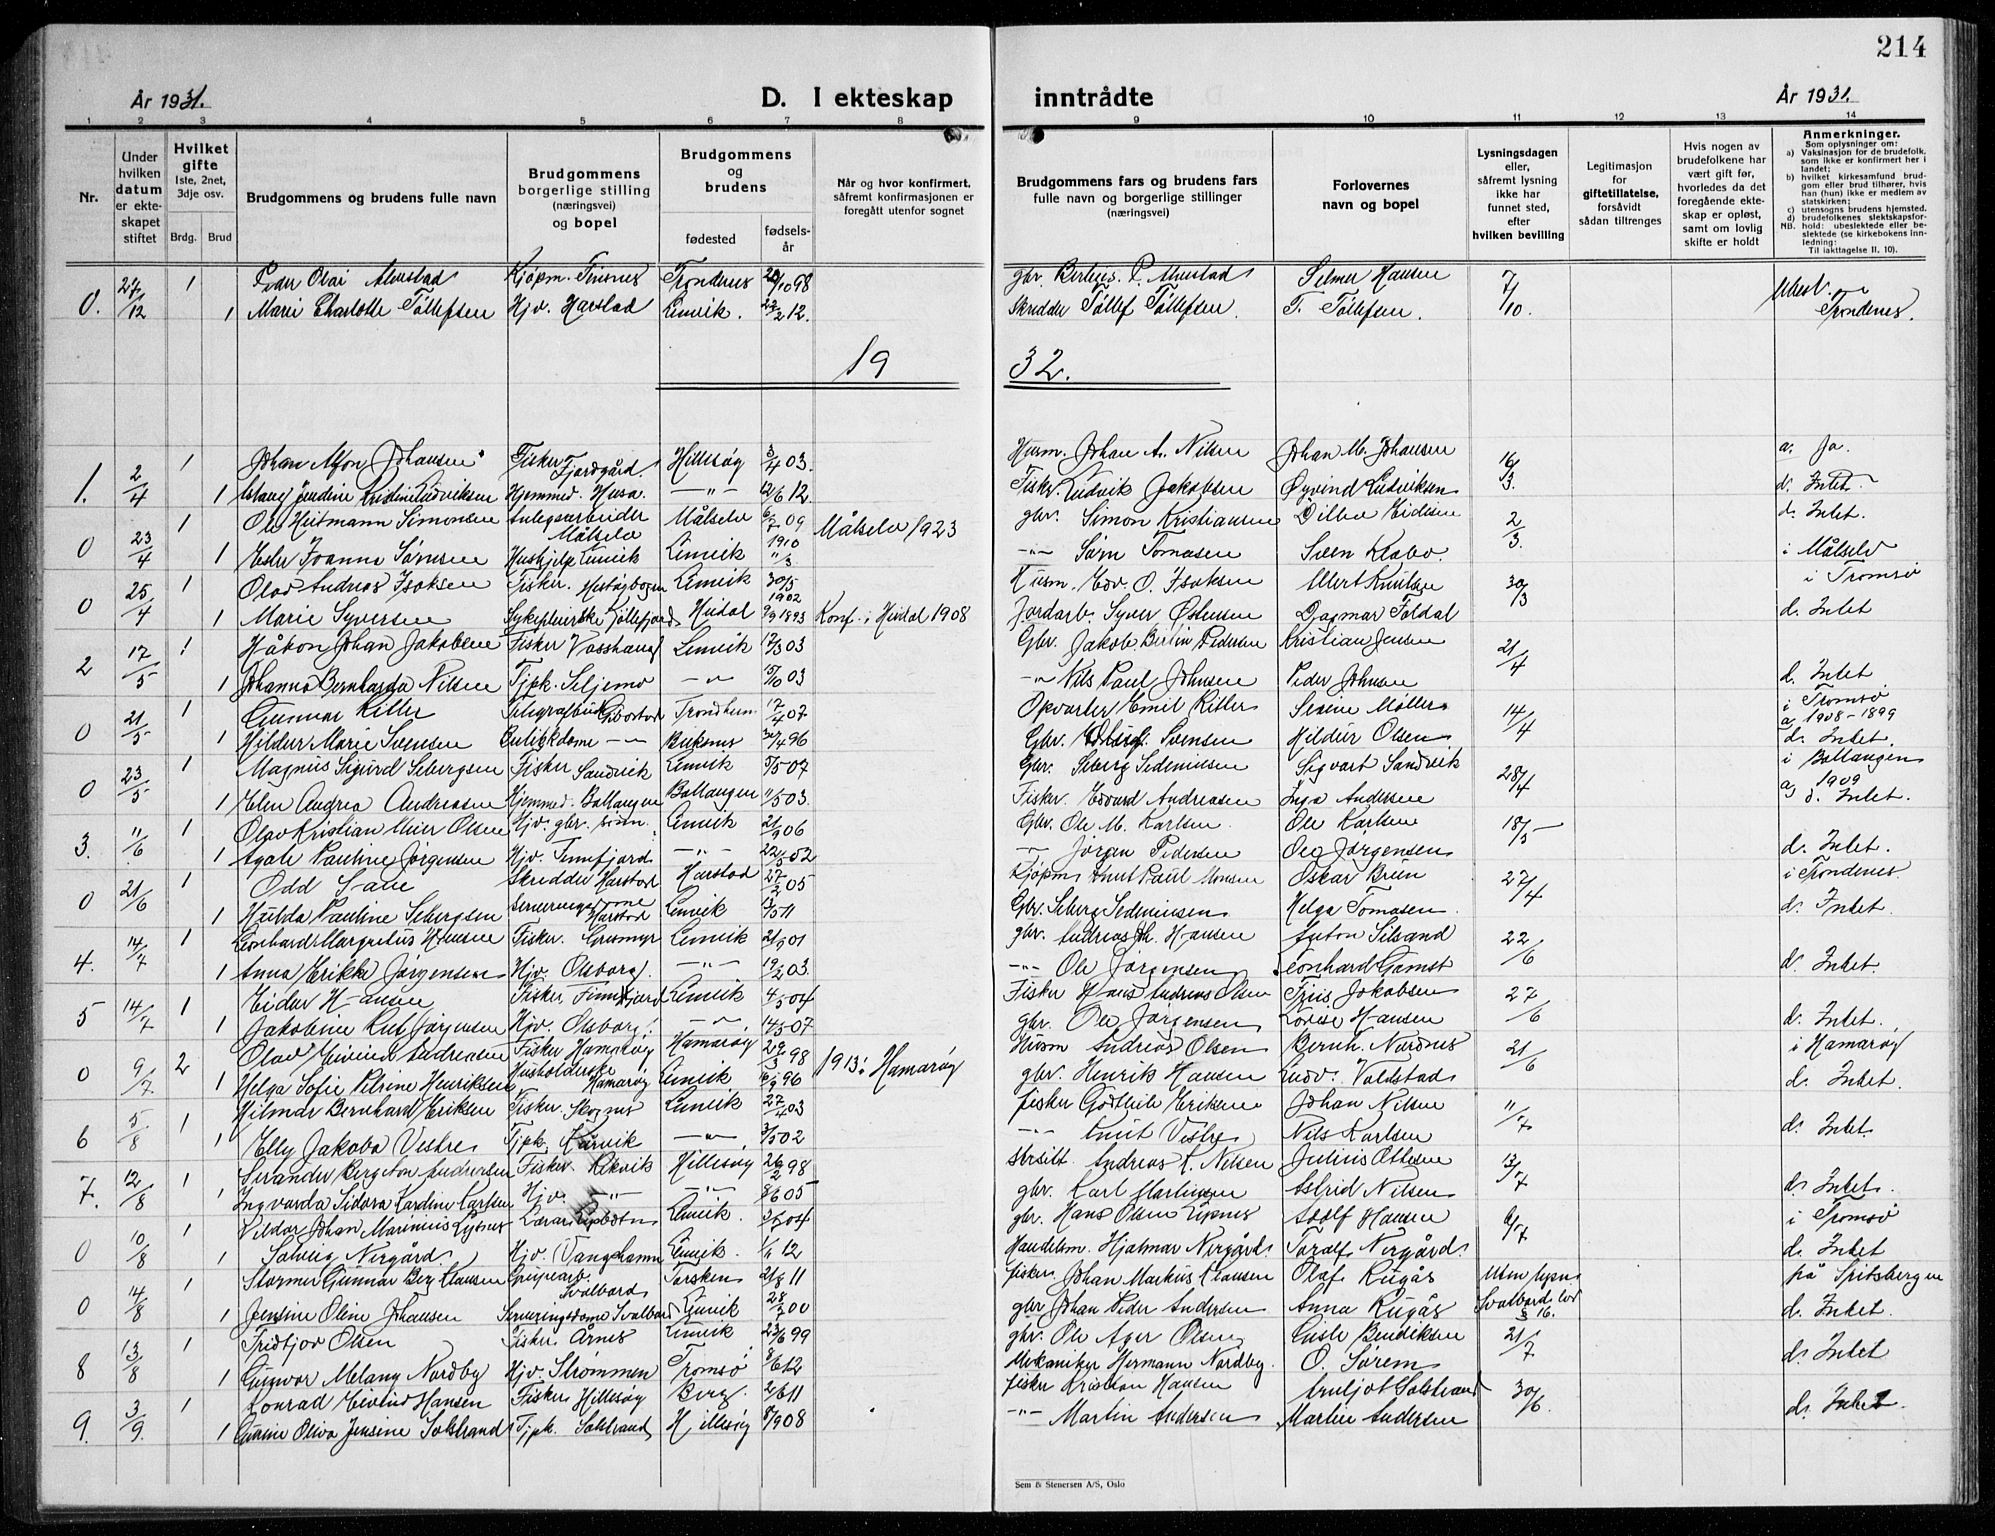 214
År 1931.
D. I ekteskap inntrådte
År 1931.
1 2 3 4 5 6 7 8 9 10 11 12 13 14
Nr.
Under hvilken datum er ekteskapet stiftet
Hvilket gifte
1ste, 2net, 3dje osv.
Brdg. Brud
Brudgommens og brudens fulle navn
Brudgommens borgerlige stilling (næringsvei) og bopel
Brudgommens og brudens
fødested
fødselsår
Når og hvor konfirmert, såfremt konfirmasjonen er foregått utenfor sognet
Brudgommens fars og brudens fars fulle navn og borgerlige stillinger (næringsvei)
Forlovernes navn og bopel
Lysningsdagen eller, såfremt lysning ikke har funnet sted, efter hvilken bevilling
Legitimasjon for giftetillatelse, forsåvidt sådan tiltrenges
Hvis nogen av brudefolkene har vært gift før, hvorledes da det foregående ekteskap er opløst, samt om lovlig skifte er holdt
Anmerkninger.
Som oplysninger om:
a) Vaksinasjon for de brudefolk, som ikke er konfirmert her i landet;
b) hvilket kirkesamfund brudgom eller brud tilhører, hvis han (hun) ikke er medlem av statskirken;
c) utensogns brudens hjemsted.
d) brudefolkenes slektskapsforhold: ubeslektede eller beslektede (se kirkebokens innledning:
NB. Til iakttagelse II, 10).
0. 27/12 1 Peder Olai Kjøpm. Finsnes Trondenes 98 gbr. P. Selmer Hansen 7/10
1 Marie Charlotte Tøllefsen Hjv. Harstad Lenvik. 12. Skredder Tøllef Tøllefsen. T. Tøllefsen. Trondenes.
19 32.
1. 2/4 1 Johan Alfon Johansen Fisker Fjordgård Hillesøy 3/4 03. Husm. Johan A. Nilsen Johan M. Johansen 16/3. a. Ja.
1 Jendine Kristine Ludviksen Hjemmed. Husø. -"- 12/6 12. Fisker Ludvik Jakobsen Øyvind Ludviksen d. Intet
0 23/4 1 Ole Heitmann Simonsen Anlegsarbeider Målselv Målselv 09 Målselv 1923 gbr. Simon Kristiansen Eidesen 2/3. d. Intet.
1 Joanna Sørnsen Hushjelp Lenvik Lenvik 1910 11/3. -"- Sørn Tomasen Svein Klabo. i Målselv
0 25/4 1 Olav Andreas Isaksen Fisker. Lenvik 30/5 1902 Husm. Edv. O. Isaksen Knutsen 30/3 i Tromsø
1 Marie Syversen Sykepleierske Kjøllefjord Hurdal 9/9 1893 Konf. i Hurdal 1908 Jordarb. Syver Østensen Dagmar Foldal d. Intet
2 17/5 1 Håkon Johan Jakobsen Fisker Vosshaug Lenvik 17/3 03 Gbr. Jakob Bertin Pedersen Kristian Jensen 21/4
1 Johanna Bernharda Nilsen Tjpk. Seljemo -"- 15/10 03 -"- Nils Paul Johnsen Peder Johnsen d. Intet
0 21/5 1 Gunnar Killer Gibostad Trondhem. 17/4 07 Emil Killer Møller 14/4 i Tromsø
1 Hildur Marie Svensen -"- 96 Gbr. Svensen Hildur Olsen a) 1908-1899 d. Intet.
0 23/5 1 Magnus Sigurd Sebergsen Fisker Sandvik Lenvik 5/5 07 Gbr. Seberg Sedeniusen Sigvart Sandvik 28/4 i Ballangen
1 Elen Andrea Andreasen Hjemmed. Ballangen Ballangen 11/5 03. Fisker. Edvard Andreasen Inga Andersen a) 1909 d. Intet.
3. 11/6 1 Olav Kristian Meier Olsen Hjv. gbr. sønn. Lenvik 21/9 06 Gbr. Ole M. Karlsen. Ole Karlsen 18/5
1 Agate Pauline Jørgensen Hjv. Finnfjord -"- 22/5 02 -"- Jørgen Pedersen Ole Jørgensen d. Intet.
0 21/6 1 Odd Skredder Harstad Harstad 27/2 05 Kjøpm. Knut Paul Oskar Bruen 27/4 i Trondenes.
1 Hulda Pauline Sebergsen Serveringsdame Harstad Lenvik 13/5 11 Gbr. Seberg Sedeniusen Helga Tomasen. d. Intet.
4. 14/7 1 Leonhard Margretus Hansen Fisker. Grasmyr Lenvik 21/9 01 gbr. Andreas Hansen Anton Silsand 22/6
1 Anna Erikke Jørgensen Hjv. Olsborg. -"- 19/2 03. -"- Ole Jørgensen Leonhard Gamst d. Intet.
5 14/7 1 Eidar Hansen Fisker Finnfjord Lenvik 4/5 04 Fisker Hans Andreas Olsen Friis Jakobsen 27/6
1 Jakobine Jørgensen Hjv. Olsborg. -"- 14/5 07 gbr. Ole Jørgensen Lovise Hansen d. Intet.
0 9/7 2 Olav Eivind Andreasen Fisker Hamarøy Hamarøy 29/3 98 1913 i Hamarøy Husm Andreas Olsen Bernh. Nordnes 21/6 i Hamarøy
1 Helga Sofie Petrine Henriksen Husholderske Hamarøy Lenvik 96 gbr. Henrik Hansen Ludv. Valdstad d. Intet.
6 5/8 1 Hilmar Bernhard Eriksen Fisker. Skognes Lenvik 27/4 03 fisker Godtlieb Eriksen Johan Nilsen 11/7
1 Elly Jakoba Vestre Tjpk. Kårvik -"- 3/5 02 -"- Knut Vestre Nils Karlsen d. Intet
7. 12/8 1 Strander Bergeton Andreasen Fisker. Rekvik Hillesøy 26/2 98 Andreas L. Nilsen Julius Ottesen 13/7
1 Ingvarda Sidora Kardine Karlsen Hjv. -"- -"- 8/6 05 gbr. Karl Martinsen Astrid Nilsen d. Intet.
0 10/8 1 Vildar Johan Marinius Lysnes Lærer Lysbotn Lenvik. 04 gbr. Hans Olsen Lysnes Adolf Hansen 6/7 i Tromsø
1 Solveig Nergård. Hjv. Vangshamn Lenvik. 1/1 12 Handelsm. Hjalmar Nergård. Toralf Nergård. d. Intet
0 14/8 1 Stormer Gunnar Berg Klausen Gruvearb. Svalbard Torsken 21/8 11 fisker Johan Markus Klausen Olaf Kugås Uten lysn. på Spitsbergen
1 Jensine Oline Johansen Serveringsdame Svalbard Lenvik 28/7 00 gbr Johan Peder Andersen Anna Kugås Svalbard lov § 16. d. Intet.
8 13/8 1 Fridtjov Olsen Fisker Årnes Lenvik 23/6 99 gbr. Ole Ager Olsen Gisle Bendiksen 21/7
1 Gunvor Melany Nordby Hjv. Strømmen Tromsø 8/6 12 Mekaniker Hermann Nordby. O. Sørem d. Intet
9. 3/9. 1 Konrad Eivind Hansen Fisker Hillesøy Berg. 2/6 11 fisker Kristian Hansen Arnljot Solstrand 30/6
1 Oliva Jensine Solstrand Tjpk. Solstrand Hillesøy 8/9 08 -"- Martin Andersen Martin Andersen d. Intet.
Sem & Stenersen A/S, Oslo